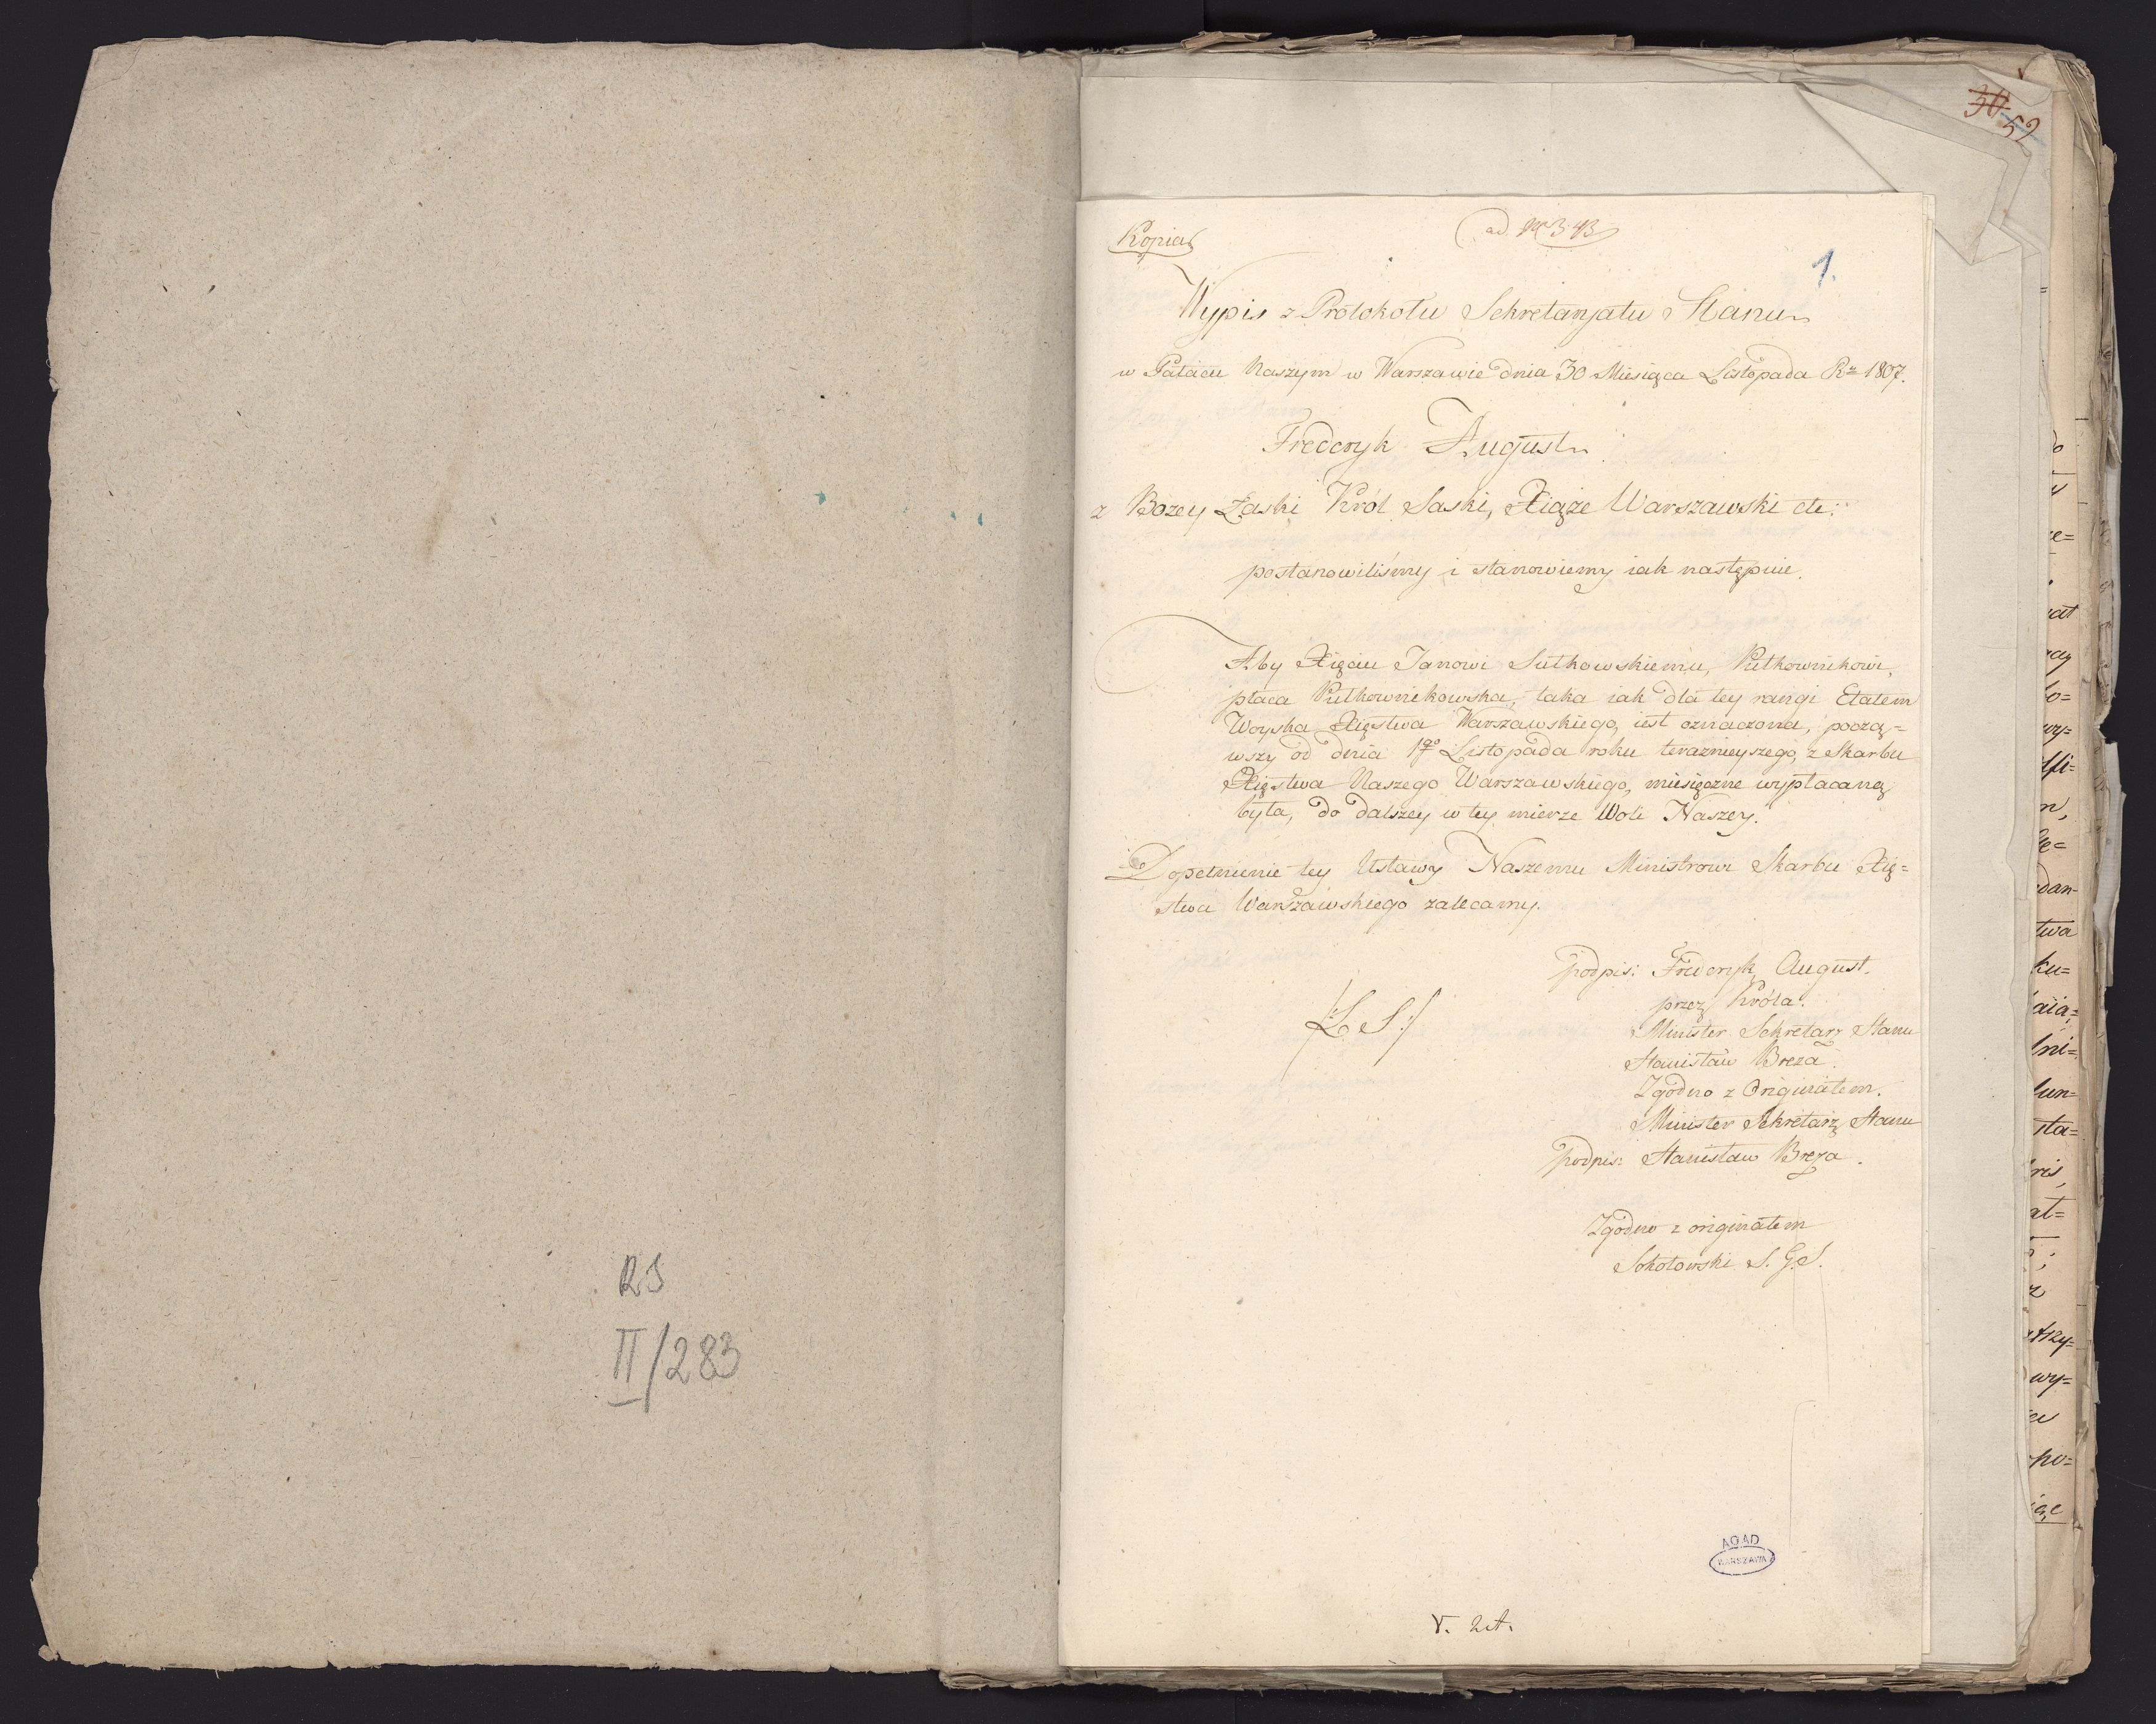 RS
II/283
30 52
Kopia
ad Nr 343
1.
Wypis z Protokołu Sekretaryatu Stanu
w Pałacu Naszym w Warszawie dnia 30 Miesiąca Listopada Ru 1807.
Frederyk August
z Bozey Łaski Król Saski, Xiąże Warszawski etc:
postanowiliśmy i stanowiemy iak następuie.
Aby Xięciu Janowi Sułkowskiemu, Pułkownikowi,
płaca Pułkownikowska, taka iak dla tey rangi Etatem
Woyska Xięstwa Warszawskiego, iest oznaczona, począ=
wszy od dnia 1go Listopada roku teraznieyszego, z Skarbu
Xięstwa Naszego Warszawskiego, miesięczne wypłacaną
była, do dalszey w tey mierze Woli Naszey.
Dopełnienie tey Ustawy Naszemu Ministrowi Skarbu Xię=
stwa Warszawskiego zalecamy.
podpis: Frideryk August.
przez Króla.
/:L S:/
Minister Sekretarz Stanu
Stanisław Breza.
Zgodno z Originałem.
Minister Sekretarz Stanu
podpis: Stanisław Breza.
Zgodno z originałem
Sokołowski S. G. S.
AGAD
WARSZAWA
V. 2 A.